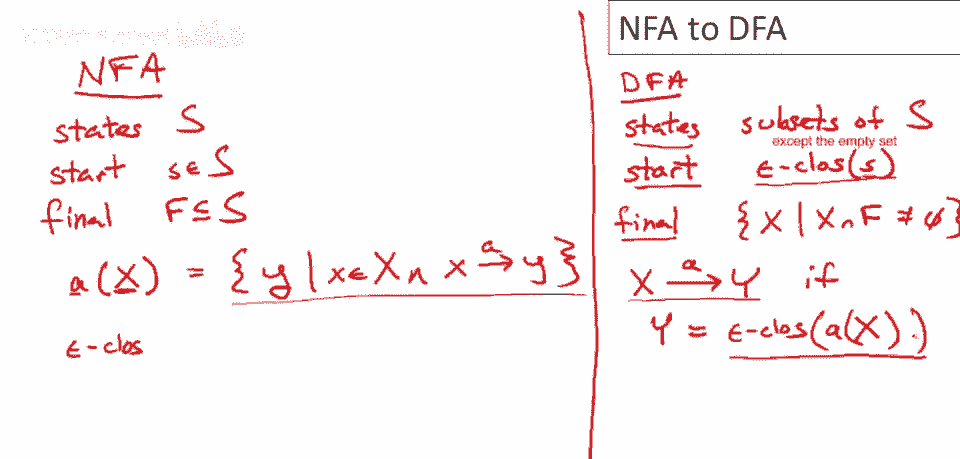 NFA
states S
start s∈S
final F⊆S
a(X) = { y | x∈X ∧ x →a y }
ε-clos
NFA to DFA
DFA
states subsets of S
except the empty set
start ε-clos(s)
final { X | X ∩ F ≠ φ }
X →a Y if
Y = ε-clos(a(X))